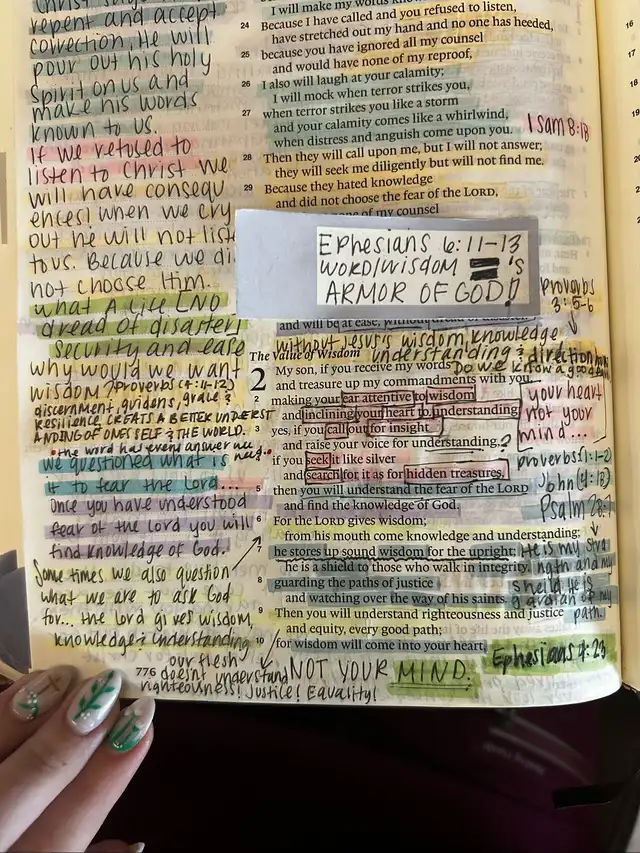 repent and accept
correction, He will
pour out his holy
spirit on us and
make his words
known to us.
If we refused to
listen to Christ we
will have consequ
ences! when we cry
out he will not list
to us. Because we di
not choose Him.
what A life [NO
dread of disaster]
security and ease
why would we want
wisdom? Proverbs (4:11-12)
discernment, guidens, grace &
Resilience, CREATS A BETTER UNDERST
ANDING OF ONESELF & THE WORLD.
• the word has every answer we
need.•
we questioned what is
it to fear the Lord...
Once you have understood
fear of the Lord you will
find knowledge of God.
Some times we also question
what we are to ask God
for... the Lord gives wisdom,
knowledge & understanding
I will make my words
24 Because I have called and you refused to listen,
have stretched out my hand and no one has heeded,
25 because you have ignored all my counsel
and would have none of my reproof,
26 I also will laugh at your calamity;
I will mock when terror strikes you,
27 when terror strikes you like a storm
and your calamity comes like a whirlwind,
when distress and anguish come upon you.
1 Sam 8:18
28 Then they will call upon me, but I will not answer;
they will seek me diligently but will not find me.
29 Because they hated knowledge
and did not choose the fear of the LORD,
none of my counsel
Ephesians 6:11-13
WORD/WISDOM 's
ARMOR OF GOD!
Proverbs
3:5-6
and will be at ease, without dread of disaster
without Jesus's wisdom, knowledge
understanding & direction
Do we know a good
The Value of Wisdom
2 My son, if you receive my words
and treasure up my commandments with you,
2 making your ear attentive to wisdom
and inclining your heart to understanding;
3 yes, if you call out for insight
and raise your voice for understanding,
if you seek it like silver
and search for it as for hidden treasures,
5 then you will understand the fear of the LORD
and find the knowledge of God.
6 For the LORD gives wisdom;
from his mouth come knowledge and understanding;
7 he stores up sound wisdom for the upright;
he is a shield to those who walk in integrity,
8 guarding the paths of justice
and watching over the way of his saints.
9 Then you will understand righteousness and justice
and equity, every good path;
10 for wisdom will come into your heart,
your heart
not your
mind...
proverbs (1:1-2)
John (4:18)
Psalm 28:7
He is my stre
ngth and my
sheild. He is
guardian of my
path.
Ephesians 4:23
our flesh
doesn't understand
righteousness! Justice! Equality!
NOT YOUR MIND.
776